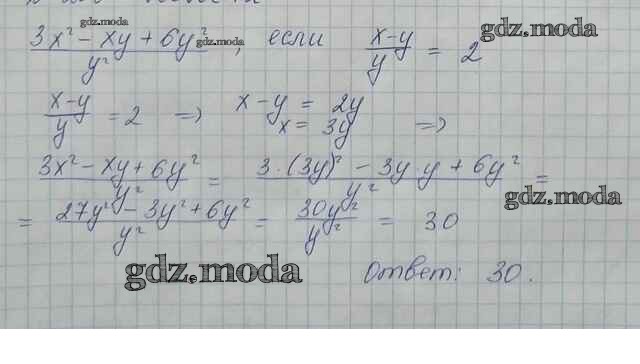 gdz.moda gdz.moda gdz.moda
(3x² - xy + 6y²)/y², если (x-y)/y = 2
(x-y)/y = 2 => x-y = 2y
x = 3y =>
(3x² - xy + 6y²)/y² = (3·(3y)² - 3y·y + 6y²)/y² =
gdz.moda
= (27y² - 3y² + 6y²)/y² = 30y²/y² = 30
gdz.moda
Ответ: 30.